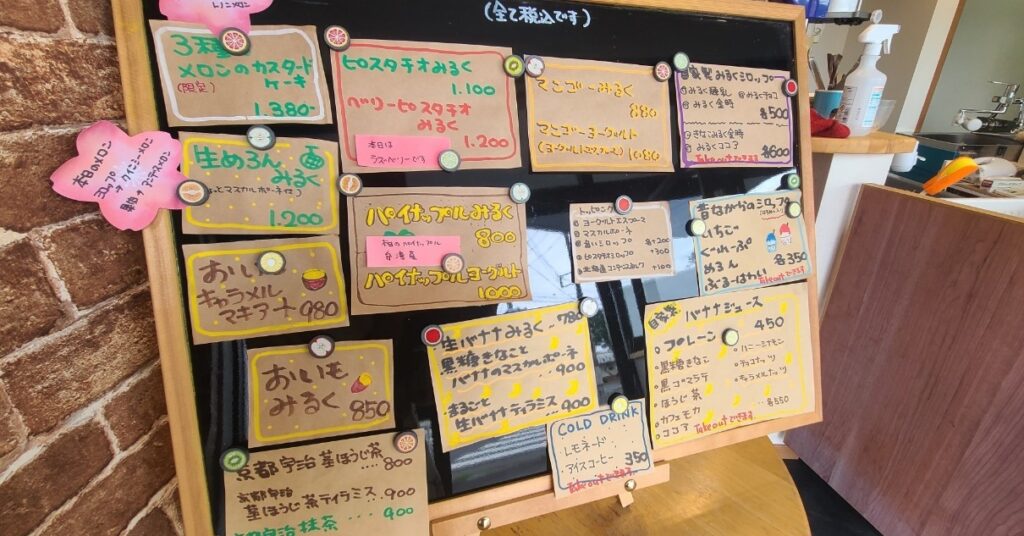 (全て税込です)
3種
メロンのカスタード
ケーキ
(限定)
1.380-
ピスタチオみるく
1.100
ベリーピスタチオ
みるく
1.200
本日は
ラズベリーです
マンゴーみるく
880
マンゴーヨーグルト
(ヨーグルトエスプーマ) 1080
自家製みるくシロップ
みるく金時
各500
きなこみるく金時
みるくココア
各600
Take outできます
本日のメロン
生めろん
みるく
1.200
パイナップルみるく
800
パイナップルヨーグルト
1000
本日のパイナップル
台湾産
トッピング
ヨーグルトエスプーマ
マスカルポーネ
追いシロップ 各+200
ピスタチオシロップ +300
昔ながらのシロップ
いちご
ぐれーぷ
めろん
ぶるーはわい
各350
Take outできます
おいも
キャラメル
マキアート 980
おいも
みるく 850
生バナナみるく‥780
黒糖きなこと
バナナのマスカルポーネ
‥900
まるごと
生バナナティラミス‥900
自家製 バナナジュース
プレーン 450
黒糖きなこ
黒ゴマラテ
ほうじ茶
カフェモカ
ココア
ハニーシナモン
チョコナッツ
キャラメルナッツ
‥各550
Take outできます
COLD DRINK
・レモネード
・アイスコーヒー 350
Take outできます
京都宇治 茎ほうじ茶
‥‥800
京都宇治
茎ほうじ茶ティラミス‥900
京都宇治抹茶
‥‥900